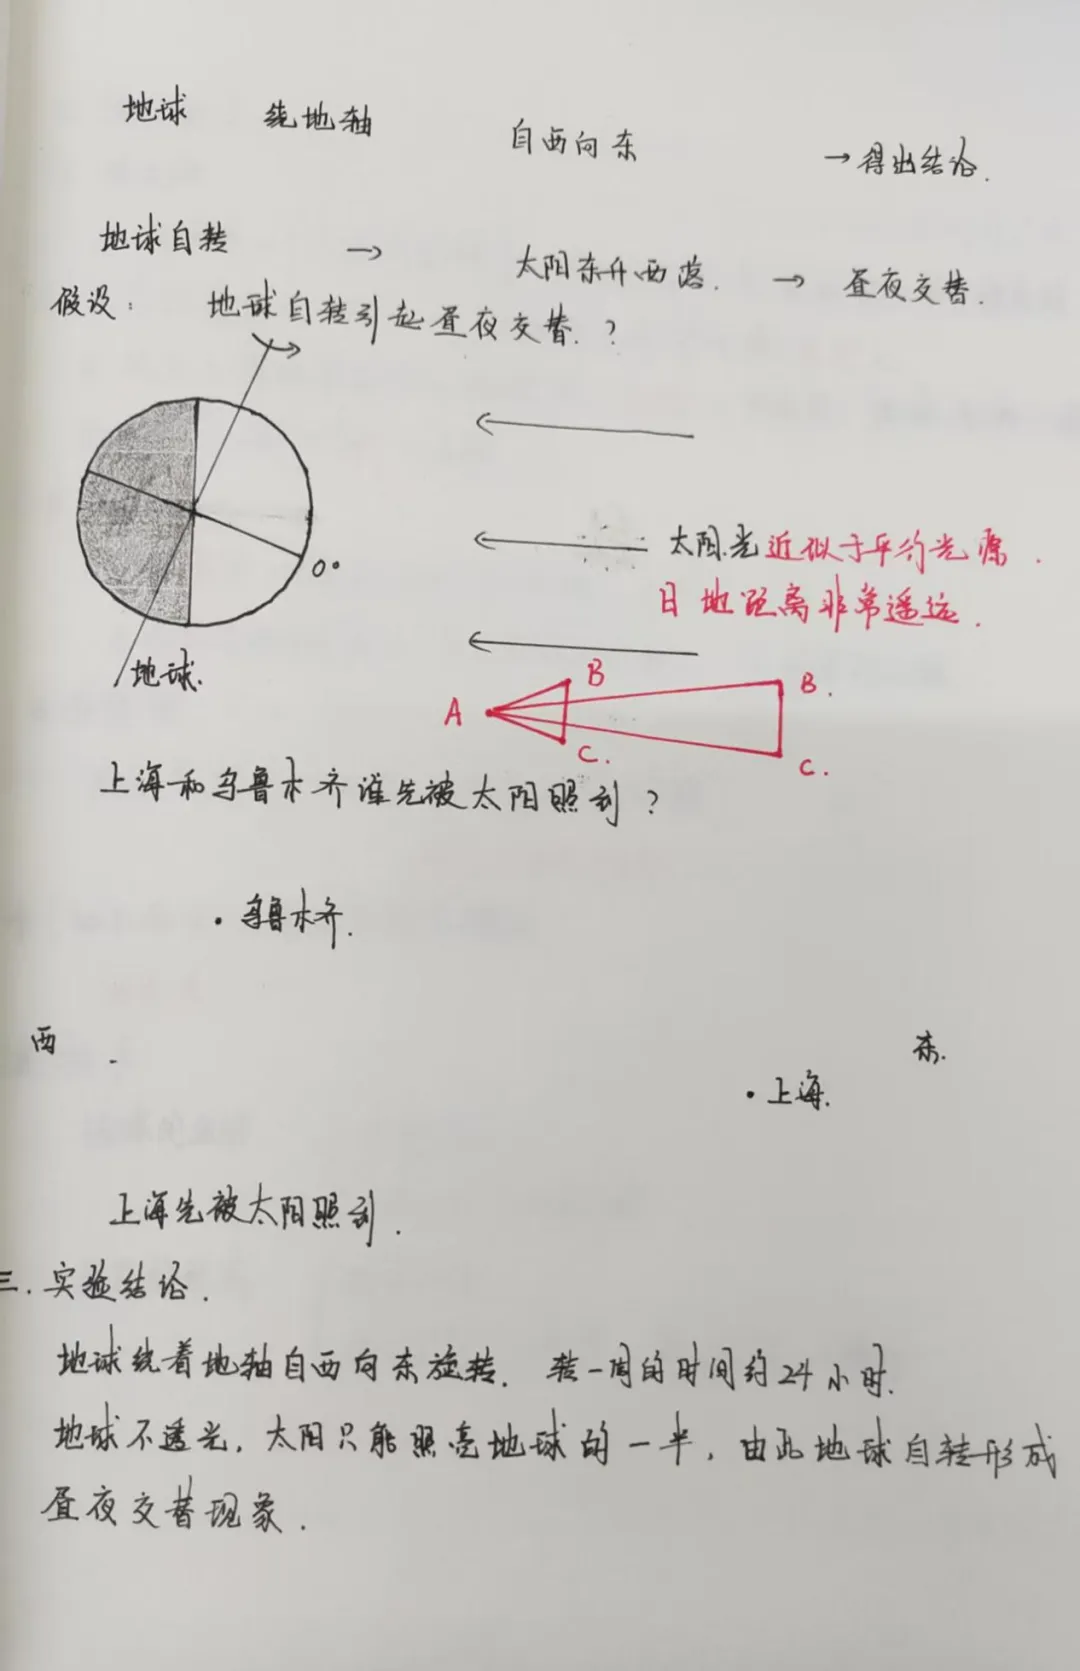 地球 绕地轴 自西向东 →得出结论.
地球自转 → 太阳东升西落. → 昼夜交替.
假设: 地球自转引起昼夜交替.?
太阳光近似于平行光源.
0°
日地距离非常遥远.
地球.
B B.
A
C. C.
上海和乌鲁木齐谁先被太阳照到?
·乌鲁木齐.
西 东.
·上海.
上海先被太阳照到.
三.实验结论.
地球绕着地轴自西向东旋转. 转一周的时间约24小时.
地球不透光,太阳只能照亮地球的一半,由此地球自转形成
昼夜交替现象.